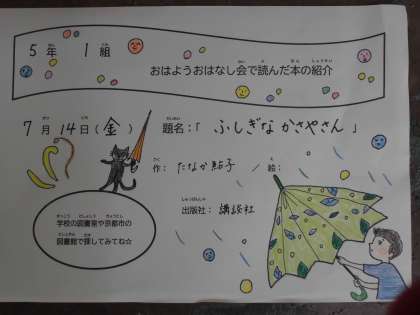 5年 1組
おはようおはなし会で読んだ本の紹介
7月14日(金) 題名:「ふしぎなかさやさん」
作:たなか鮎子 / 絵:
出版社:講談社
学校の図書室や京都市の
図書館で探してみてね☆